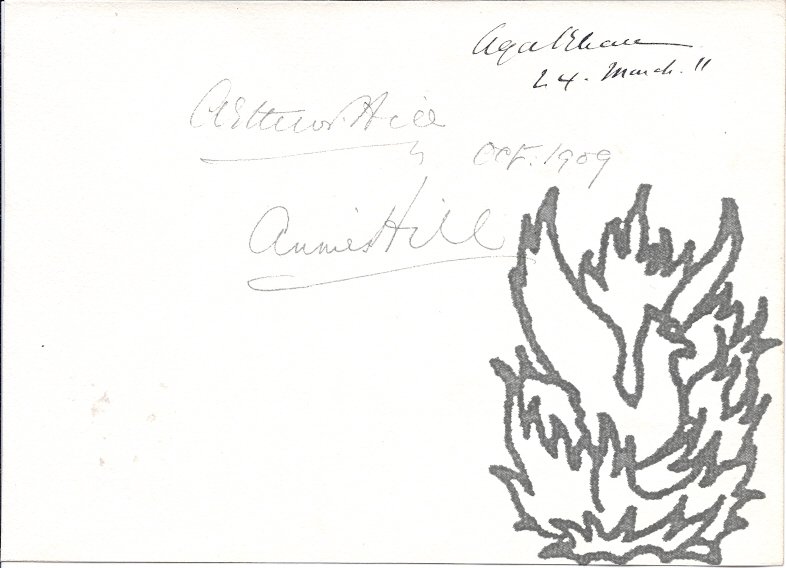 Aga Khan
24. March. 11
Arthur Hill
Oct. 1909
Annie Hill